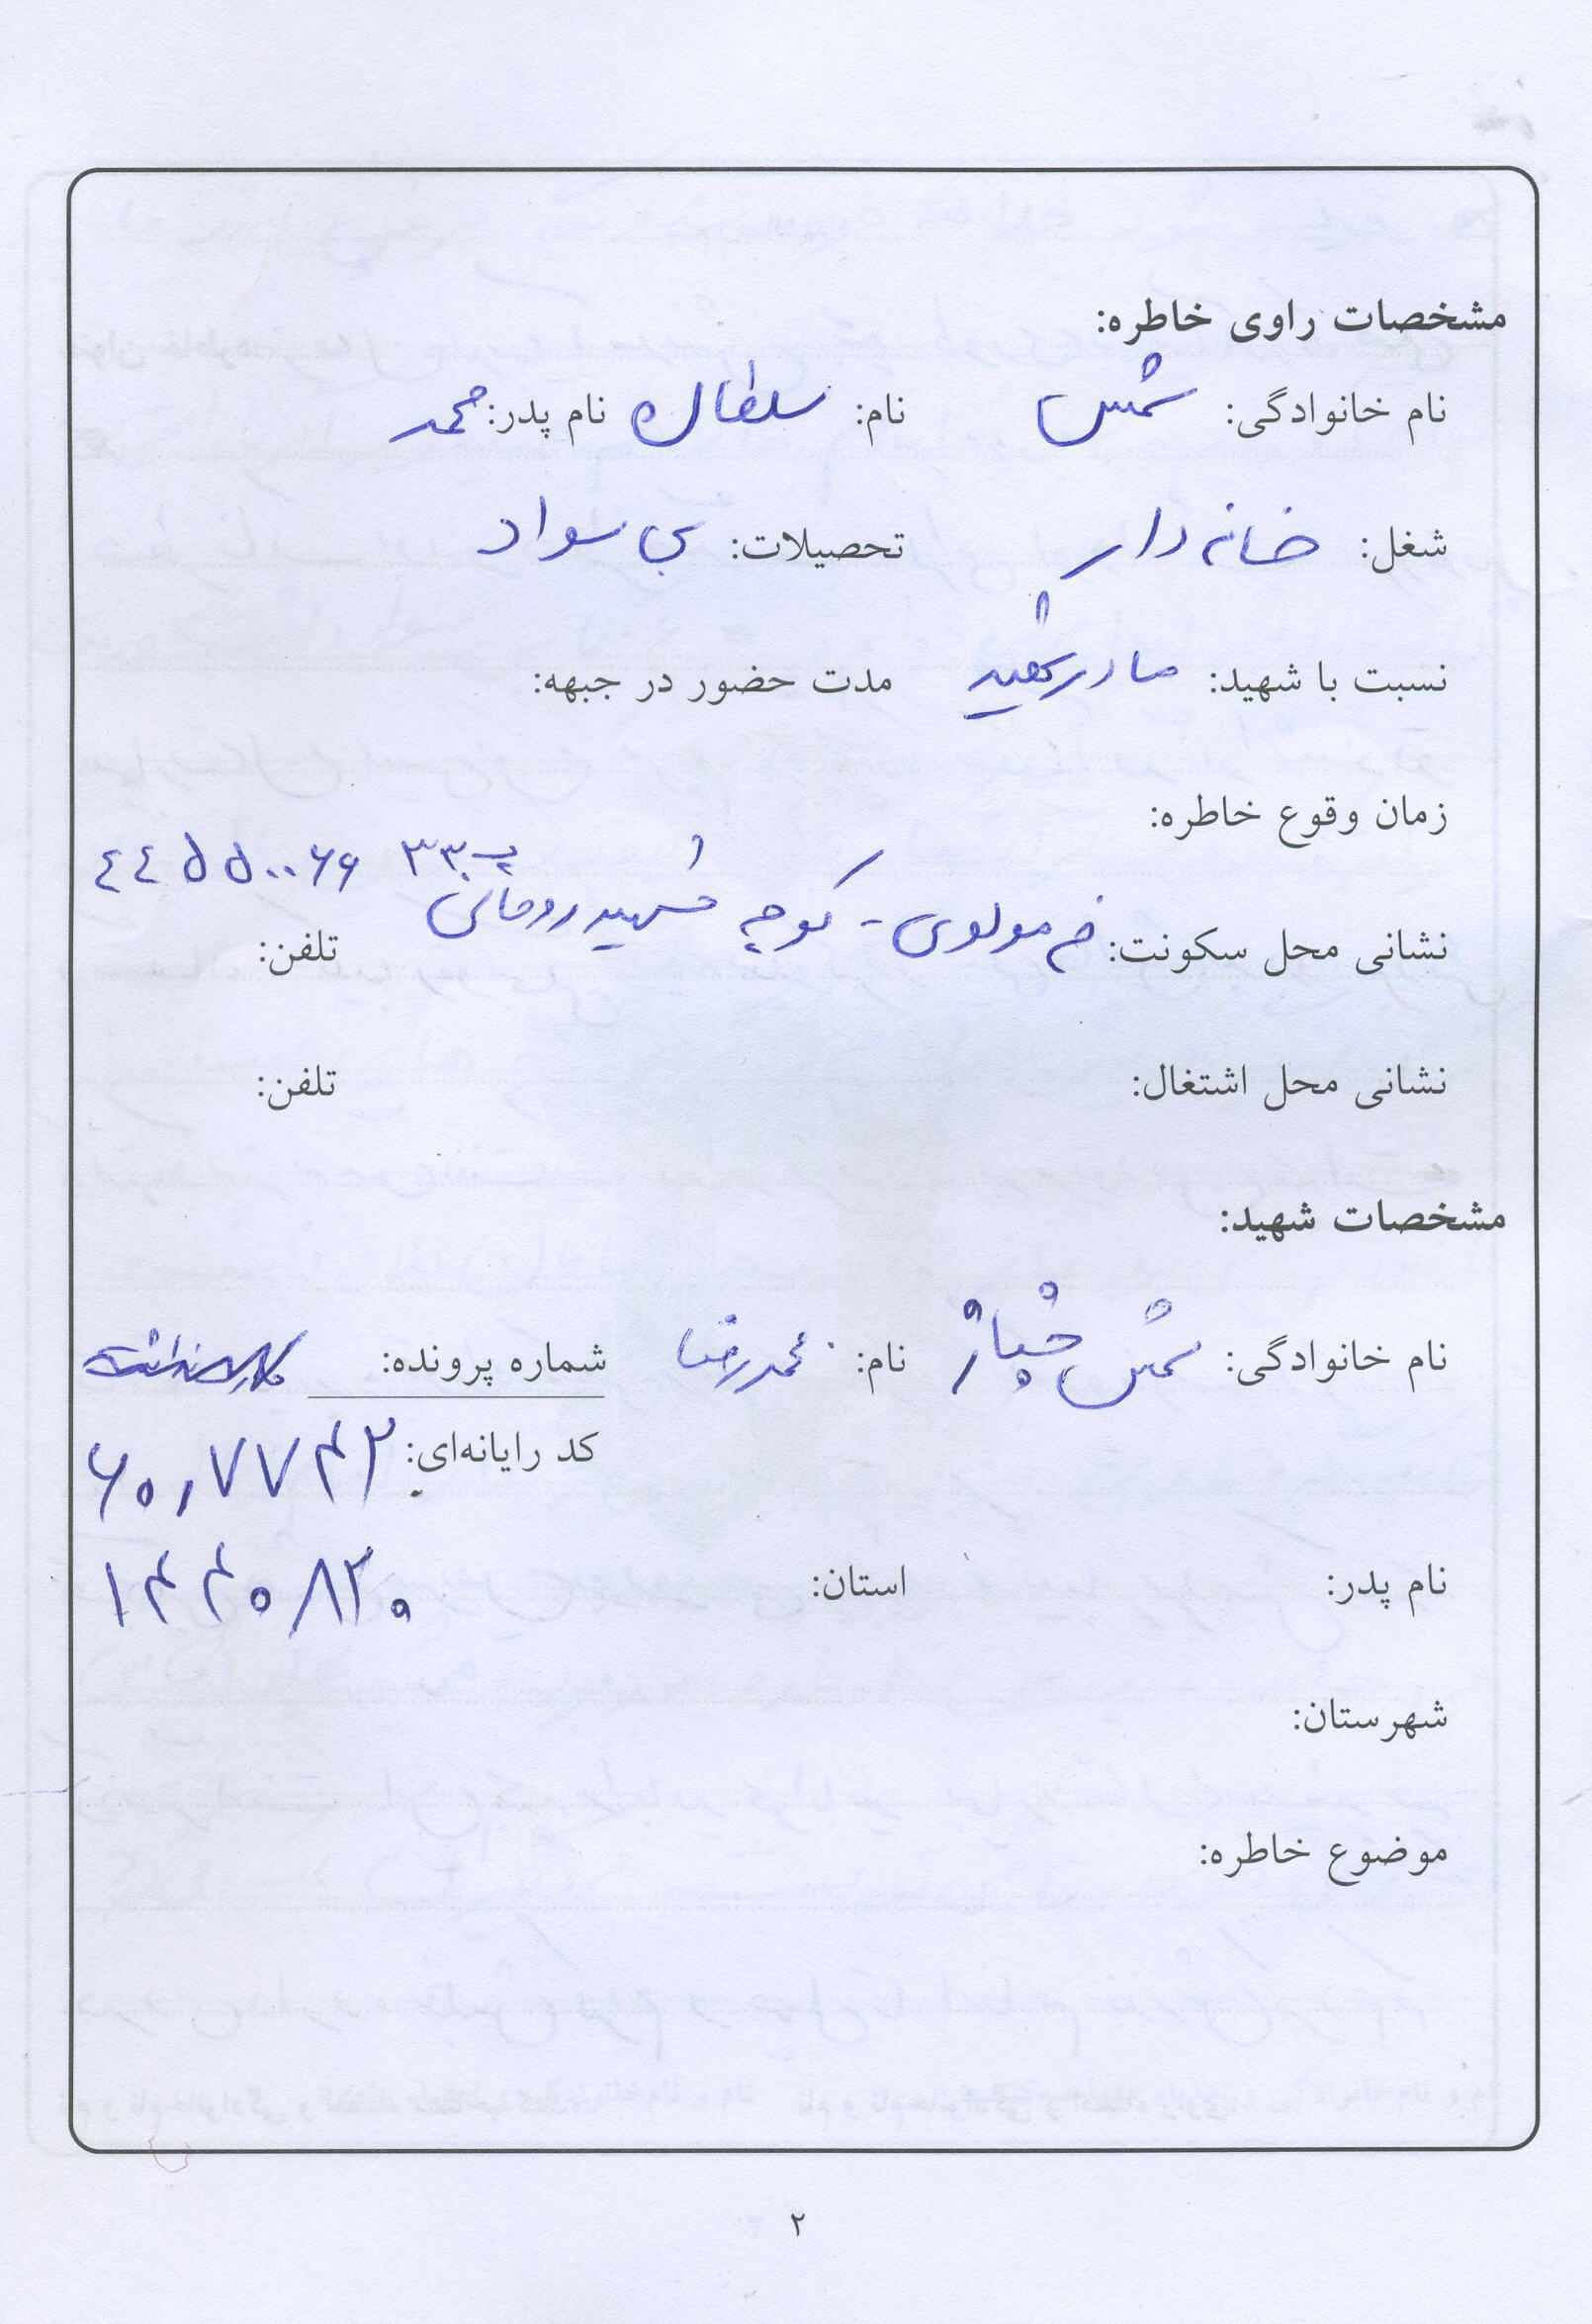 مشخصات راوی خاطره:
نام خانوادگی: شمس نام: سلطان نام پدر: محمد
شغل: خانه دار تحصیلات: بی سواد
نسبت با شهید: مادر شهید مدت حضور در جبهه:
زمان وقوع خاطره:
پ ۳۳ ٤٤٥٥٠٠۶۶
نشانی محل سکونت: خ مولوی - کوچه شهید روحانی تلفن:
نشانی محل اشتغال: تلفن:
مشخصات شهید:
نام خانوادگی: شمس خباز نام: محمدرضا شماره پرونده:
کد رایانه‌ای: ۶۰۸۷۷۴۲
نام پدر: استان: ۱۴۴۰۸۲۰
شهرستان:
موضوع خاطره:
۲